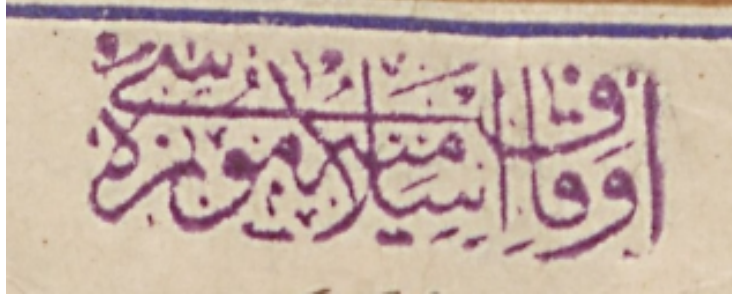 اوقاف اسلامیه موزه سی